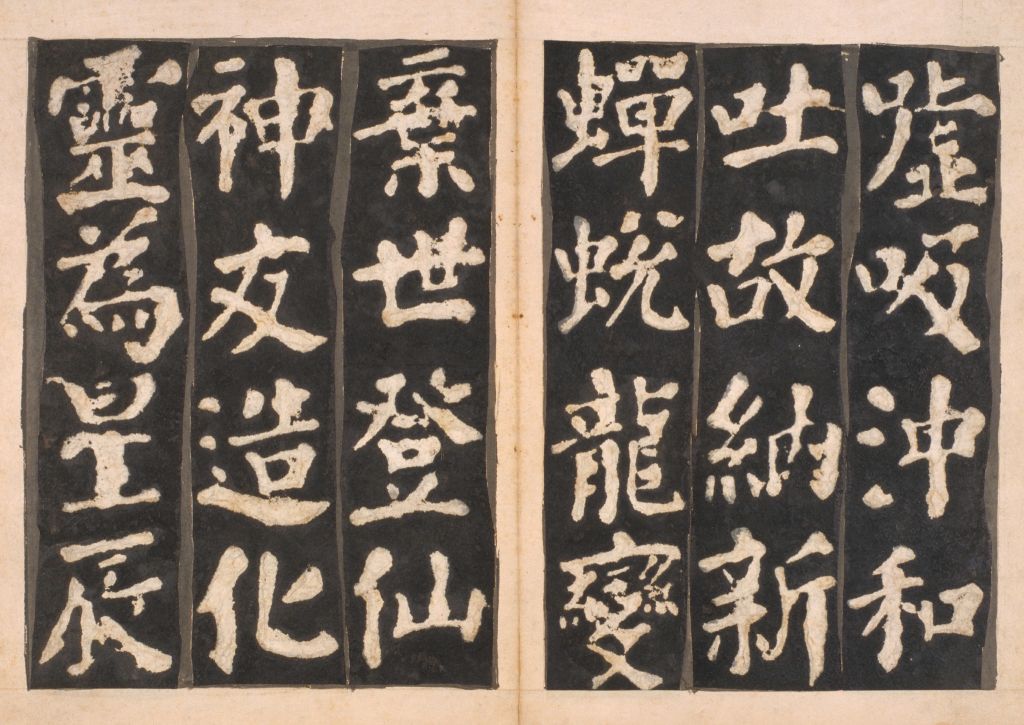 嘘吸沖和
吐故納新
蟬蛻龍變
棄世登仙
神友造化
靈為星辰